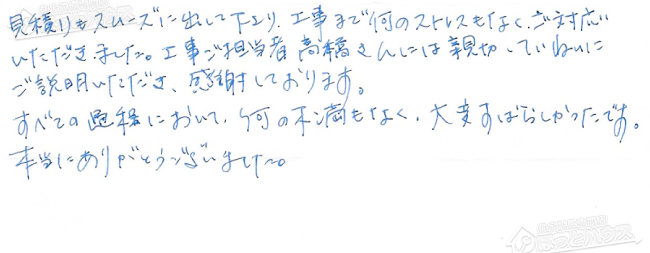 見積りもスムーズに出して下さり、工事まで何のストレスもなく、ご対応
いただきました。工事ご担当者 高橋さんには親切、ていねいに
ご説明いただき、感謝しております。
すべての過程において、何の不満もなく、大変すばらしかったです。
本当にありがとうございました。